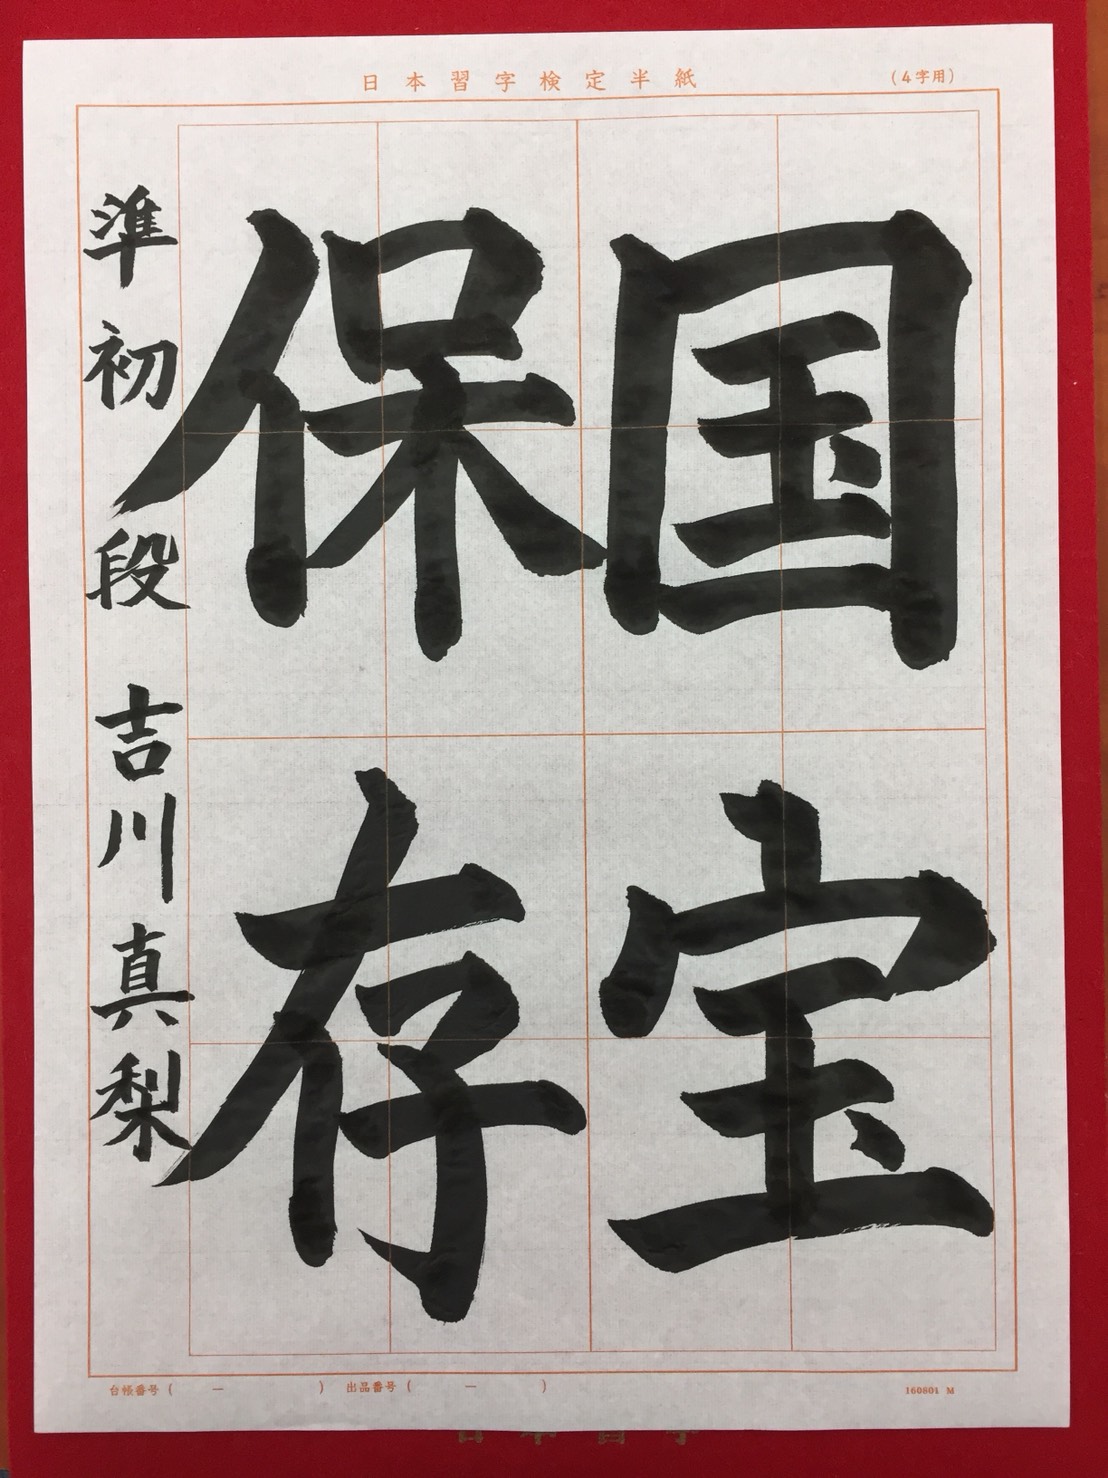 日本習字検定半紙
(4字用)
国宝
保存
準初段 吉川真梨
台帳番号 ( — )
出品番号 ( — )
160801 M
日本習字